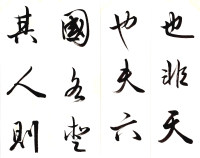 也非天
也夫六
國各壹
其人則